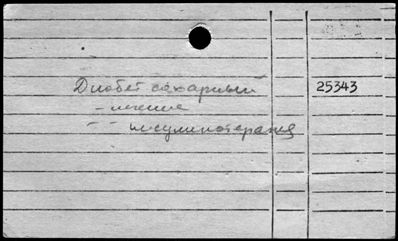 Диабет сахарный 25343
- лечение
- - инсулинотерапия